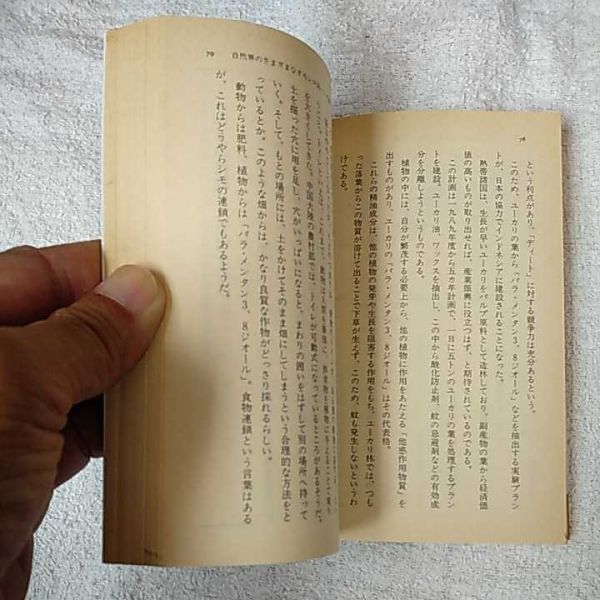 78
という利点があり、「ディート」に対する競争力は充分あるという。
このため、ユーカリの葉から「パラ・メンタン3、8ジオール」などを抽出する実験プラン
トが、日本の協力でインドネシアに建設されることになった。
熱帯諸国は、生長が早いユーカリをパルプ原料として造林しており、副産物の葉から経済価
値の高いものが取り出せれば、産業振興に役立つはず、と期待されているのである。
この計画は一九八九年度から五カ年計画で、一日に五トンのユーカリの葉を処理するプラン
トを建設、ユーカリ油、ワックスを抽出し、この中から酸化防止剤、蚊の忌避剤などの有効成
分を分離しようというのである。
植物の中には、自分が繁茂する必要上から、他の植物に作用をあたえる「他感作用物質」を
出すものがあり、ユーカリの「パラ・メンタン3、8ジオール」はその代表格。
これらの精油成分は、他の植物の発芽や生長を阻害する作用をもち、ユーカリ林では、つも
った落葉からこの物質が溶けて出ることで下草が生えず、このため、蚊も発生しないというわ
けである。
79 自然界のさまざまな
を大きくしてきた。中国大陸の農村部では、トイレが可動式になっているところがあるそうだ。
土を掘った穴に用を足し、穴がいっぱいになると、まわりの囲いをはずして別の場所へ持って
いく。そして、もとの場所には、土をかけてそのまま畑にしてしまうという合理的な方法をと
っているとか。このような畑からは、かなり良質な作物がどっさり採れるらしい。
動物からは肥料、植物からは「パラ・メンタン3、8ジオール」。食物連鎖という言葉はある
が、これはどうやらシモの連鎖でもあるようだ。